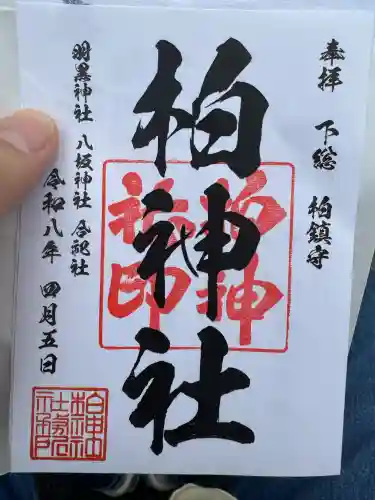 奉拝 下総 柏鎮守
柏神社
羽黒神社 八坂神社 合祀社
令和八年 四月五日
柏神
社印
柏神社
社務所